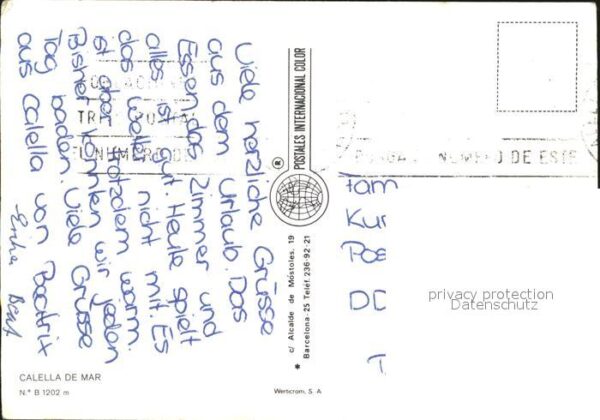 Viele herzliche Grüsse
aus dem Urlaub. Das
Essen, das Zimmer und
alles ist gut. Heute spielt
das Wetter nicht mit. Es
ist aber trotzdem warm.
Bisher können wir jeden
Tag baden. Viele Grüsse
aus Calella von Beatrix
CALELLA DE MAR
N.º B 1202 m
POSTALES INTERNACIONAL COLOR
®
c/ Alcalde de Móstoles, 19
Barcelona-25 Teléf. 236-92-21
Wertcrom, S. A.
NUMERO DE ESTE
Fam
Kur
DD
privacy protection
Datenschutz